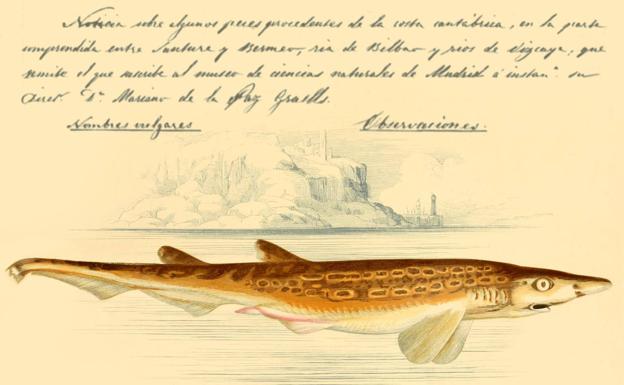 Noticia sobre algunos peces procedentes de la costa cantábrica, en la parte
comprendida entre Santurce y Bermeo, ria de Bilbao y rios de Vizcaya, que
remite el que suscribe al museo de ciencias naturales de Madrid á instanª. su
Direr. Dn. Mariano de la Paz Graells.
Nombres vulgares
Observaciones.